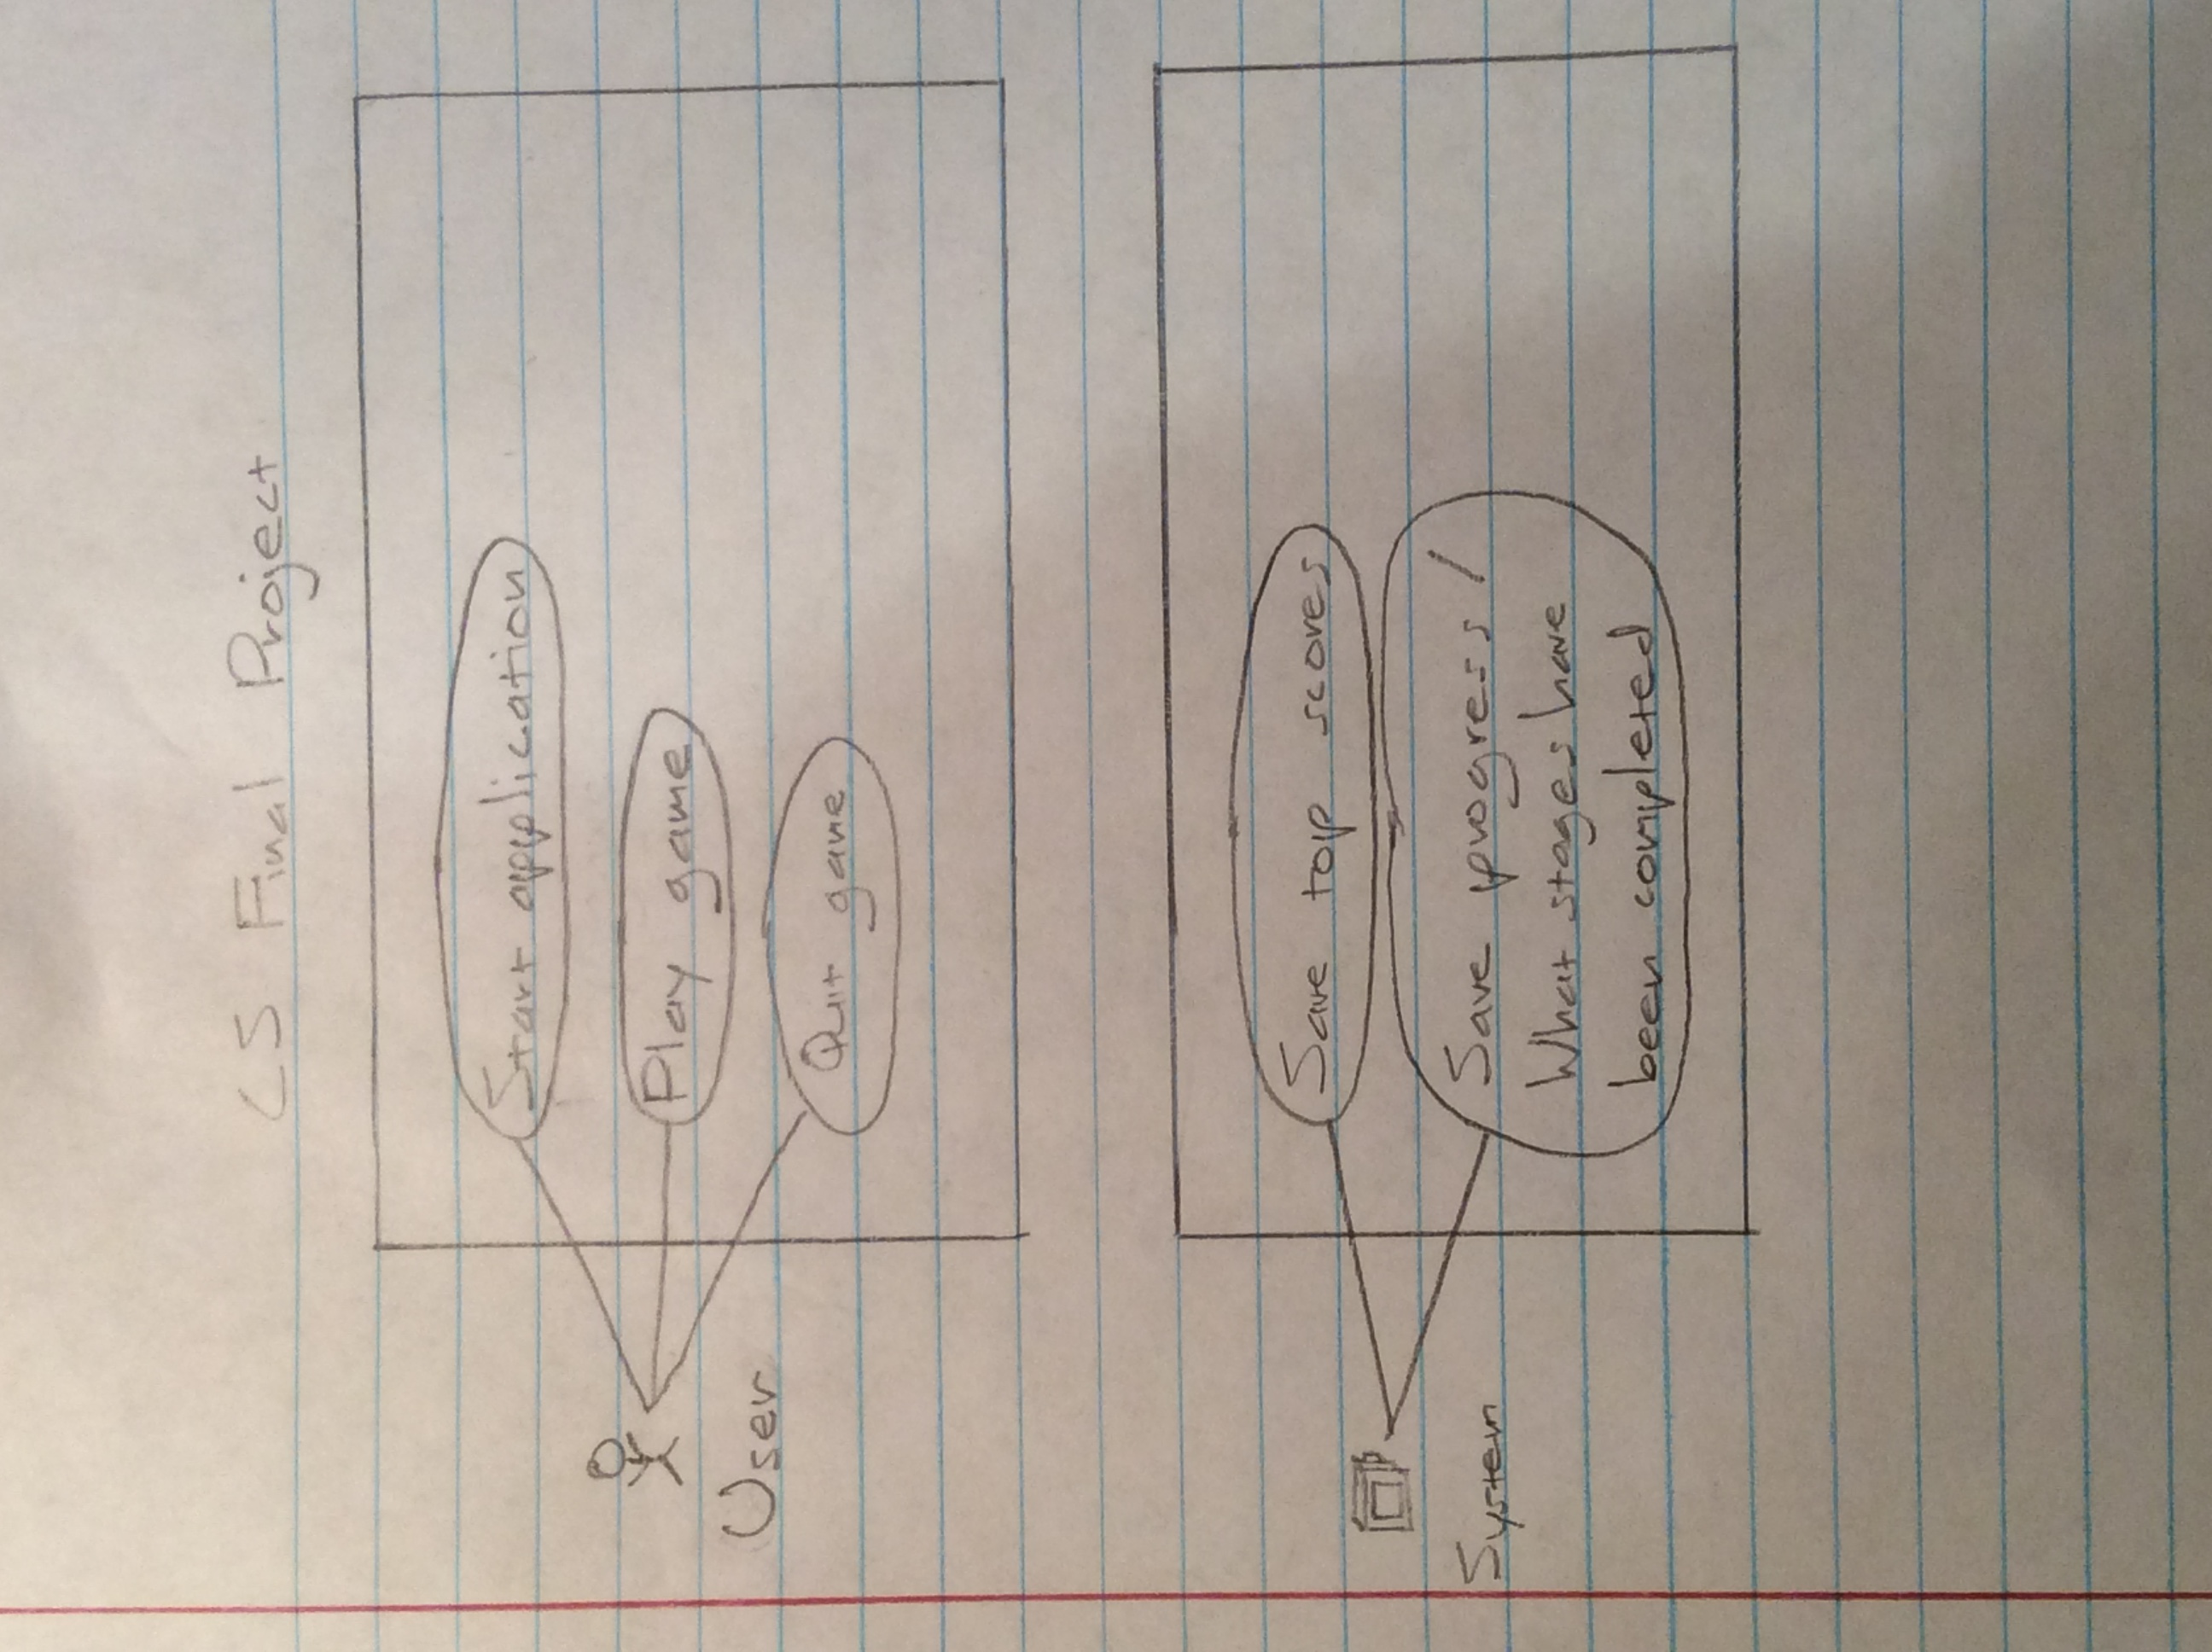 CS Final Project
Start application
Play game
User
Quit game
Save top scores
Save progress /
System
What stages have
been completed